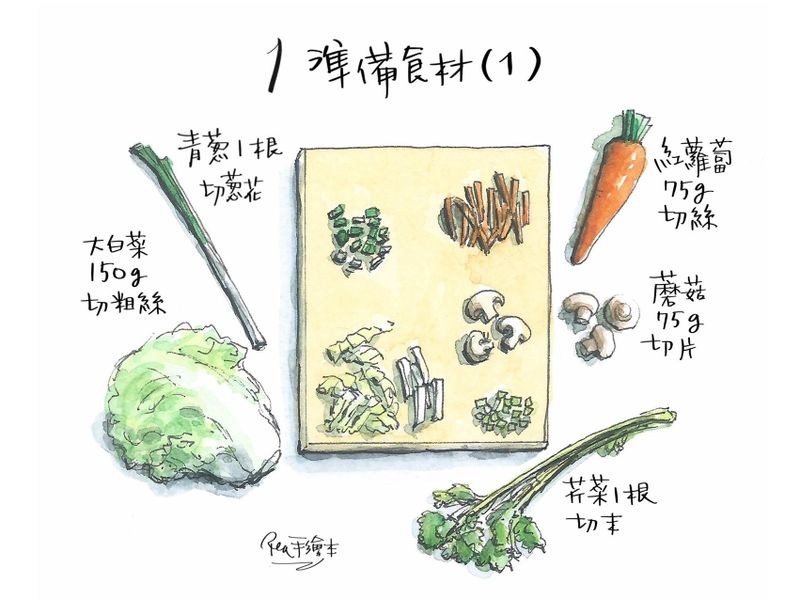 1 準備食材(1)
青蔥1根
切蔥花
紅蘿蔔
75g
切絲
大白菜
150g
切粗絲
蘑菇
75g
切片
芹菜1根
切末
Rea手繪本